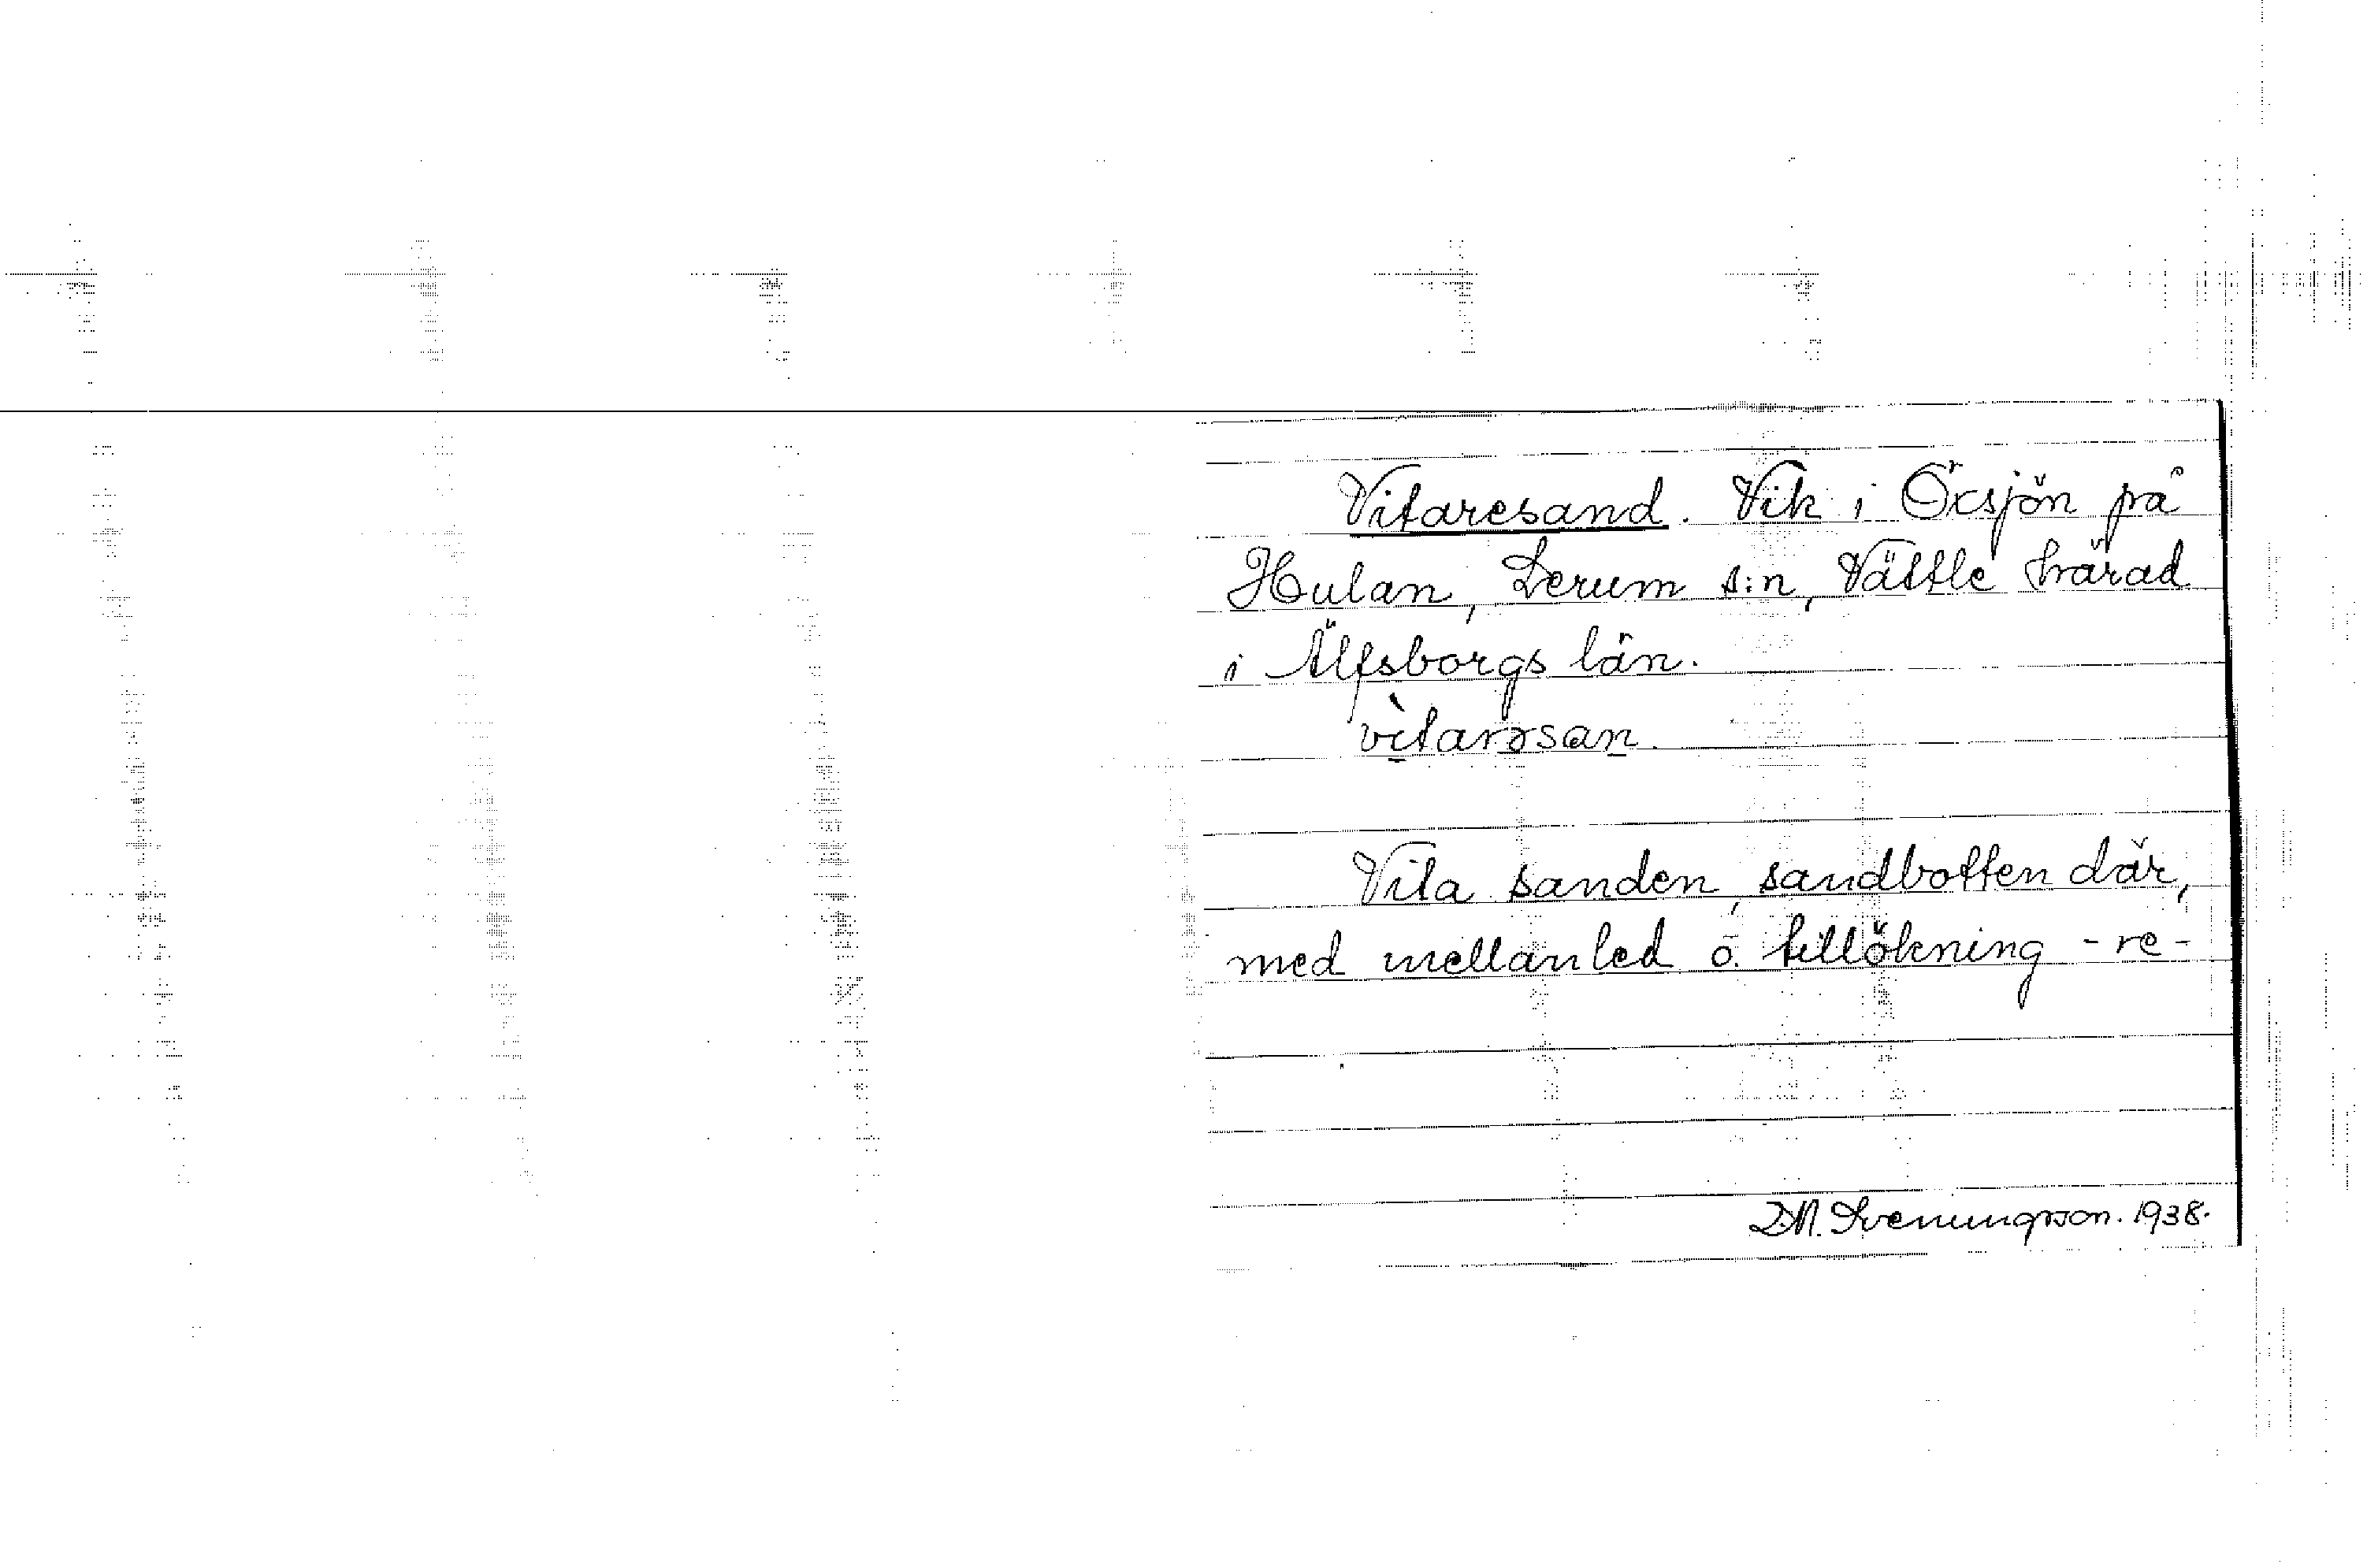 Vitaresand. Vik i Öxsjön på
Hulan, Lerum s:n, Vättle härad
i Älfsborgs län.
vìtarəsan.
Vita sanden, sandbotten där,
med mellanled o. tillökning -re-
D.M. Sveningsson. 1938.